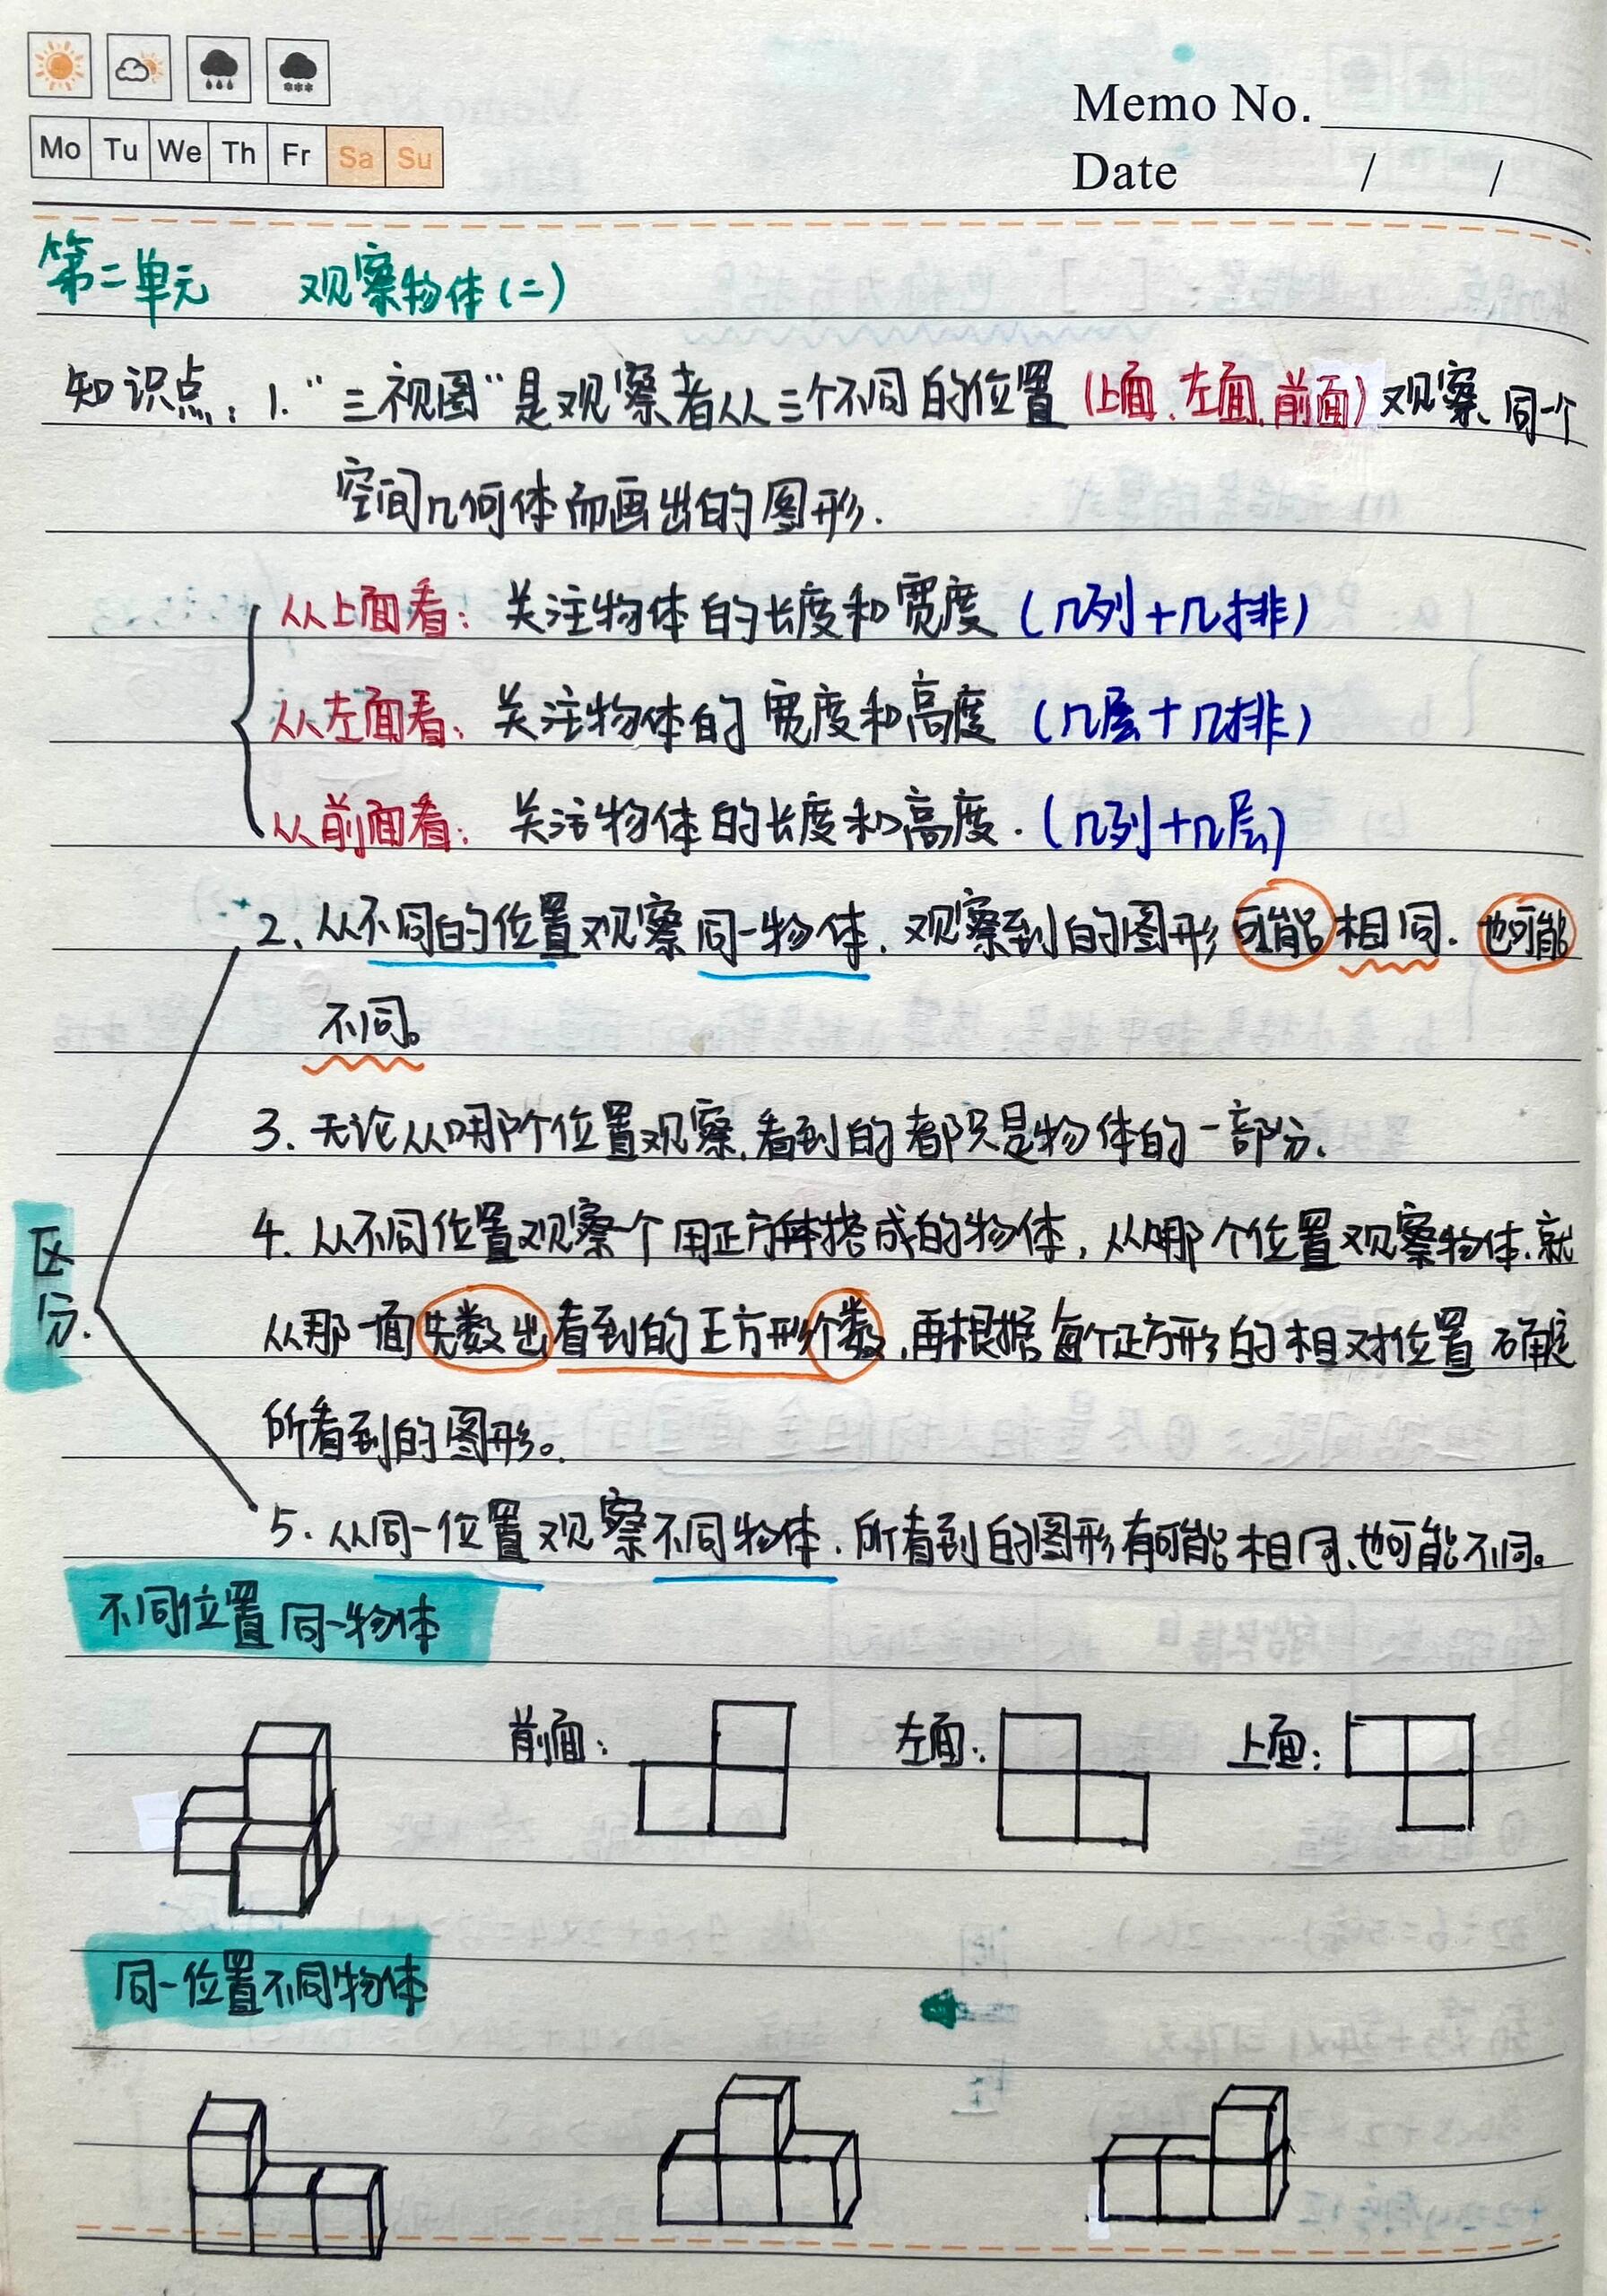 Mo Tu We Th Fr Sa Su
Memo No.
Date / /
第二单元 观察物体(二)
知识点: 1. "三视图"是观察者从三个不同的位置(上面、左面、前面)观察同一个
空间几何体而画出的图形.
从上面看: 关注物体的长度和宽度 (几列+几排)
从左面看: 关注物体的宽度和高度 (几层+几排)
从前面看: 关注物体的长度和高度. (几列+几层)
2、从不同的位置观察同一物体,观察到的图形可能相同.也可能
不同。
3. 无论从哪个位置观察,看到的都只是物体的一部分.
4. 从不同位置观察一个用正方体搭成的物体,从哪个位置观察物体,就
区分.
从那一面先数出看到的正方形个数,再根据每个正方形的相对位置确定
所看到的图形。
5. 从同一位置观察不同物体,所看到的图形有可能相同、也可能不同。
不同位置同一物体
前面: 左面: 上面:
同一位置不同物体